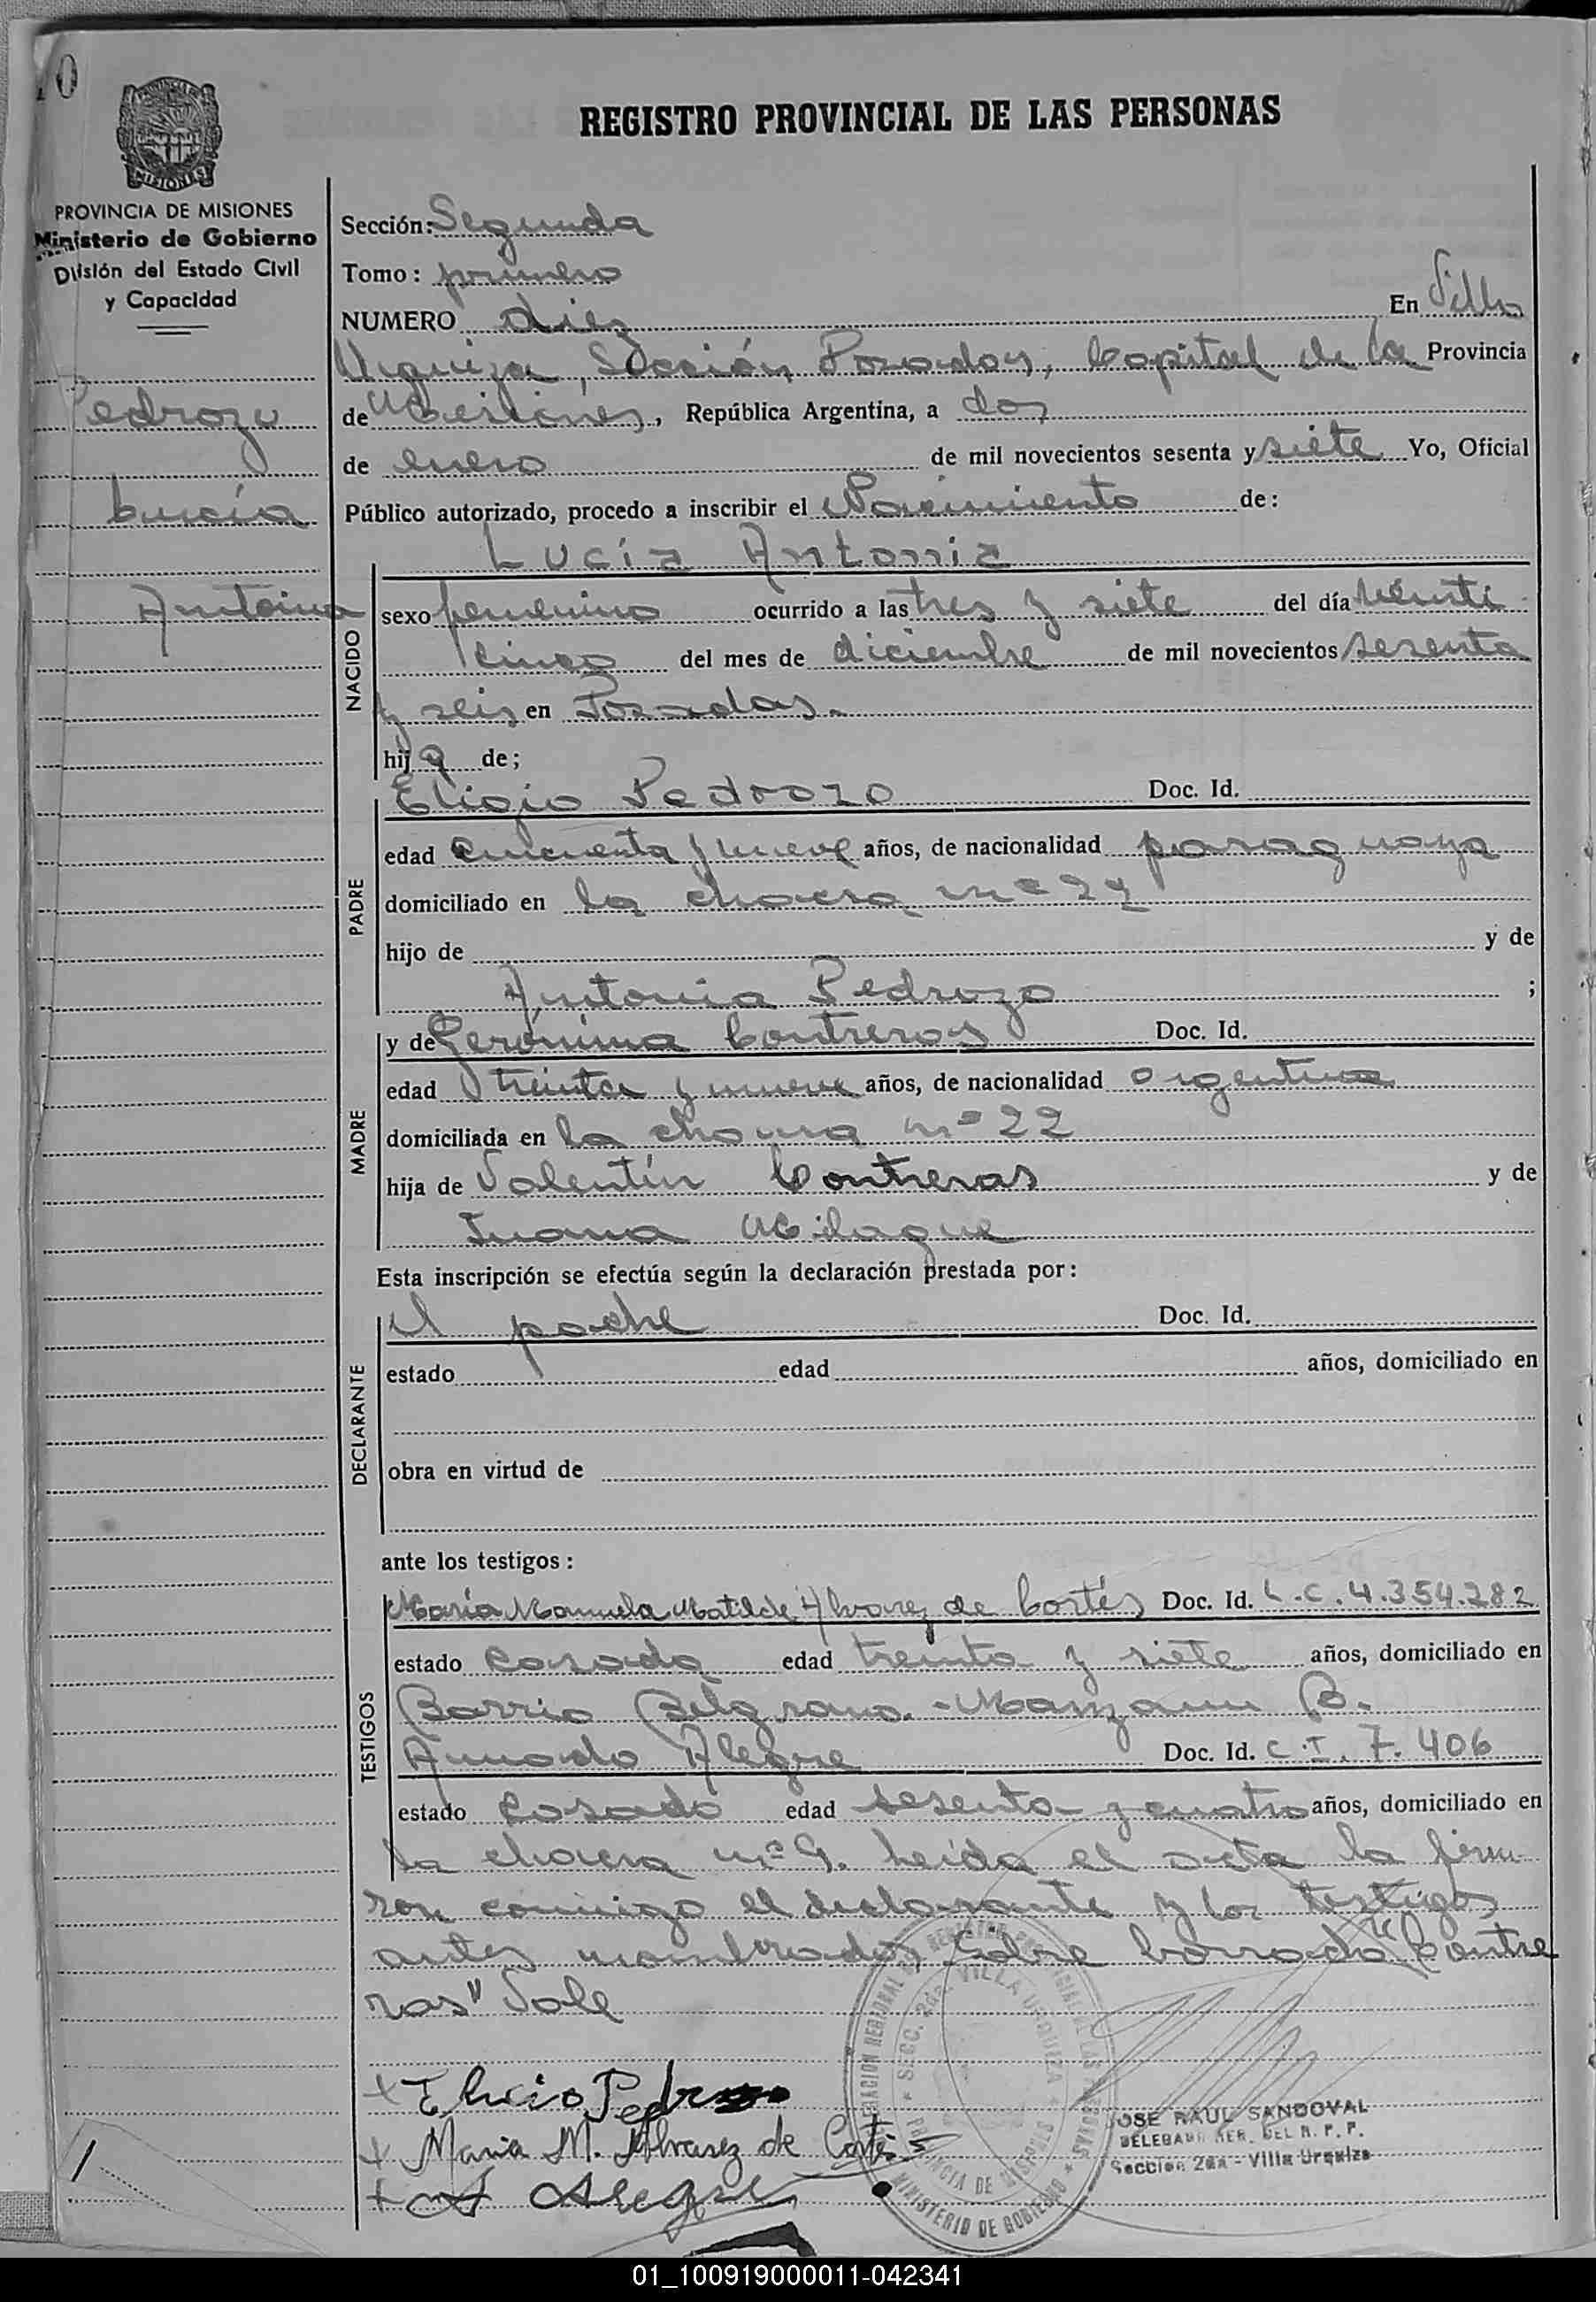 10
REGISTRO PROVINCIAL DE LAS PERSONAS
MISIONES
PROVINCIA DE MISIONES
Ministerio de Gobierno
División del Estado Civil
y Capacidad
Pedrozo
Lucía
Antonia
Sección: Segunda
Tomo: primero
NUMERO diez En Villa
Urquiza, Sección Posadas, Capital de la Provincia
de Misiones, República Argentina, a dos
de enero de mil novecientos sesenta y siete Yo, Oficial
Público autorizado, procedo a inscribir el Nacimiento de:
Lucía Antonia
NACIDO
sexo femenino ocurrido a las tres y siete del día veinti
cinco del mes de diciembre de mil novecientos sesenta
y seis en Posadas.
hija de;
PADRE
Eligio Pedrozo Doc. Id.
edad cincuenta y nueve años, de nacionalidad paraguaya
domiciliado en la chacra nº 22
hijo de y de
Antonia Pedrozo ;
MADRE
y de Gerónima Contreras Doc. Id.
edad treinta y nueve años, de nacionalidad argentina
domiciliada en la chacra nº 22
hija de Valentín Contreras y de
Juana
Esta inscripción se efectúa según la declaración prestada por:
DECLARANTE
el padre Doc. Id.
estado edad años, domiciliado en
obra en virtud de
ante los testigos:
TESTIGOS
María Manuela Matilde Alvarez de Cortés Doc. Id. L.C. 4.354.282
estado casada edad treinta y siete años, domiciliado en
Barrio Belgrano. - Manzana B.
Amado Alegre Doc. Id. C.I. 7.406
estado casado edad sesenta y cuatro años, domiciliado en
la chacra nº 9. Leída el acta la firma
ron conmigo el declarante y los testigos
antes nombrados Sobre borrado "Contre
ras" Vale
Elicio Pedrozo
Maria M. Alvarez de Cortés
A Alegre
SECC. 2da. VILLA URQUIZA
PROVINCIA DE MISIONES
MINISTERIO DE GOBIERNO
JOSE RAUL SANDOVAL
DELEGADO REG. DEL R. P. P.
Sección 2da - Villa Urquiza
01_100919000011-042341